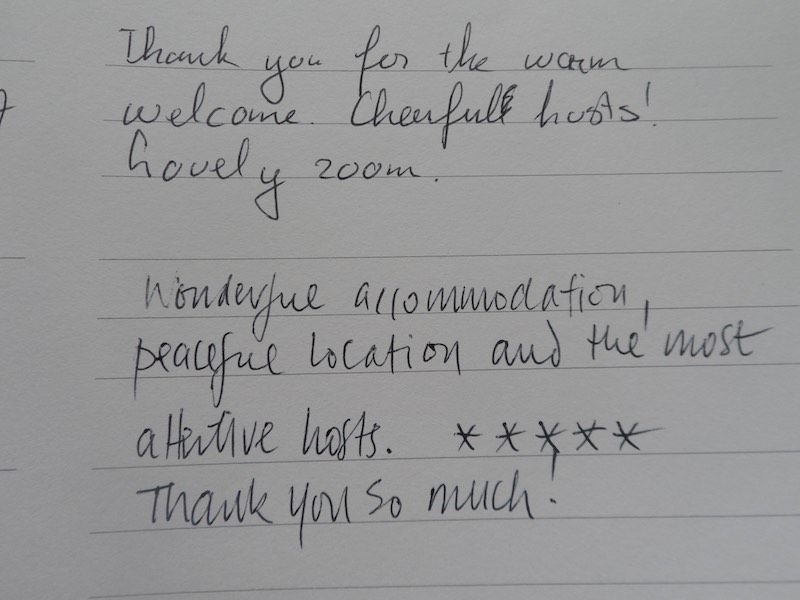 Thank you for the warm
welcome. Cheerful hosts!
Lovely room.
Wonderful accommodation,
peaceful location and the most
attentive hosts. *****
Thank you so much!